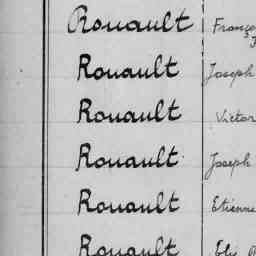 Rouault Franço
Rouault Joseph
Rouault Victor
Rouault Joseph
Rouault Etienne
Rouault Elie